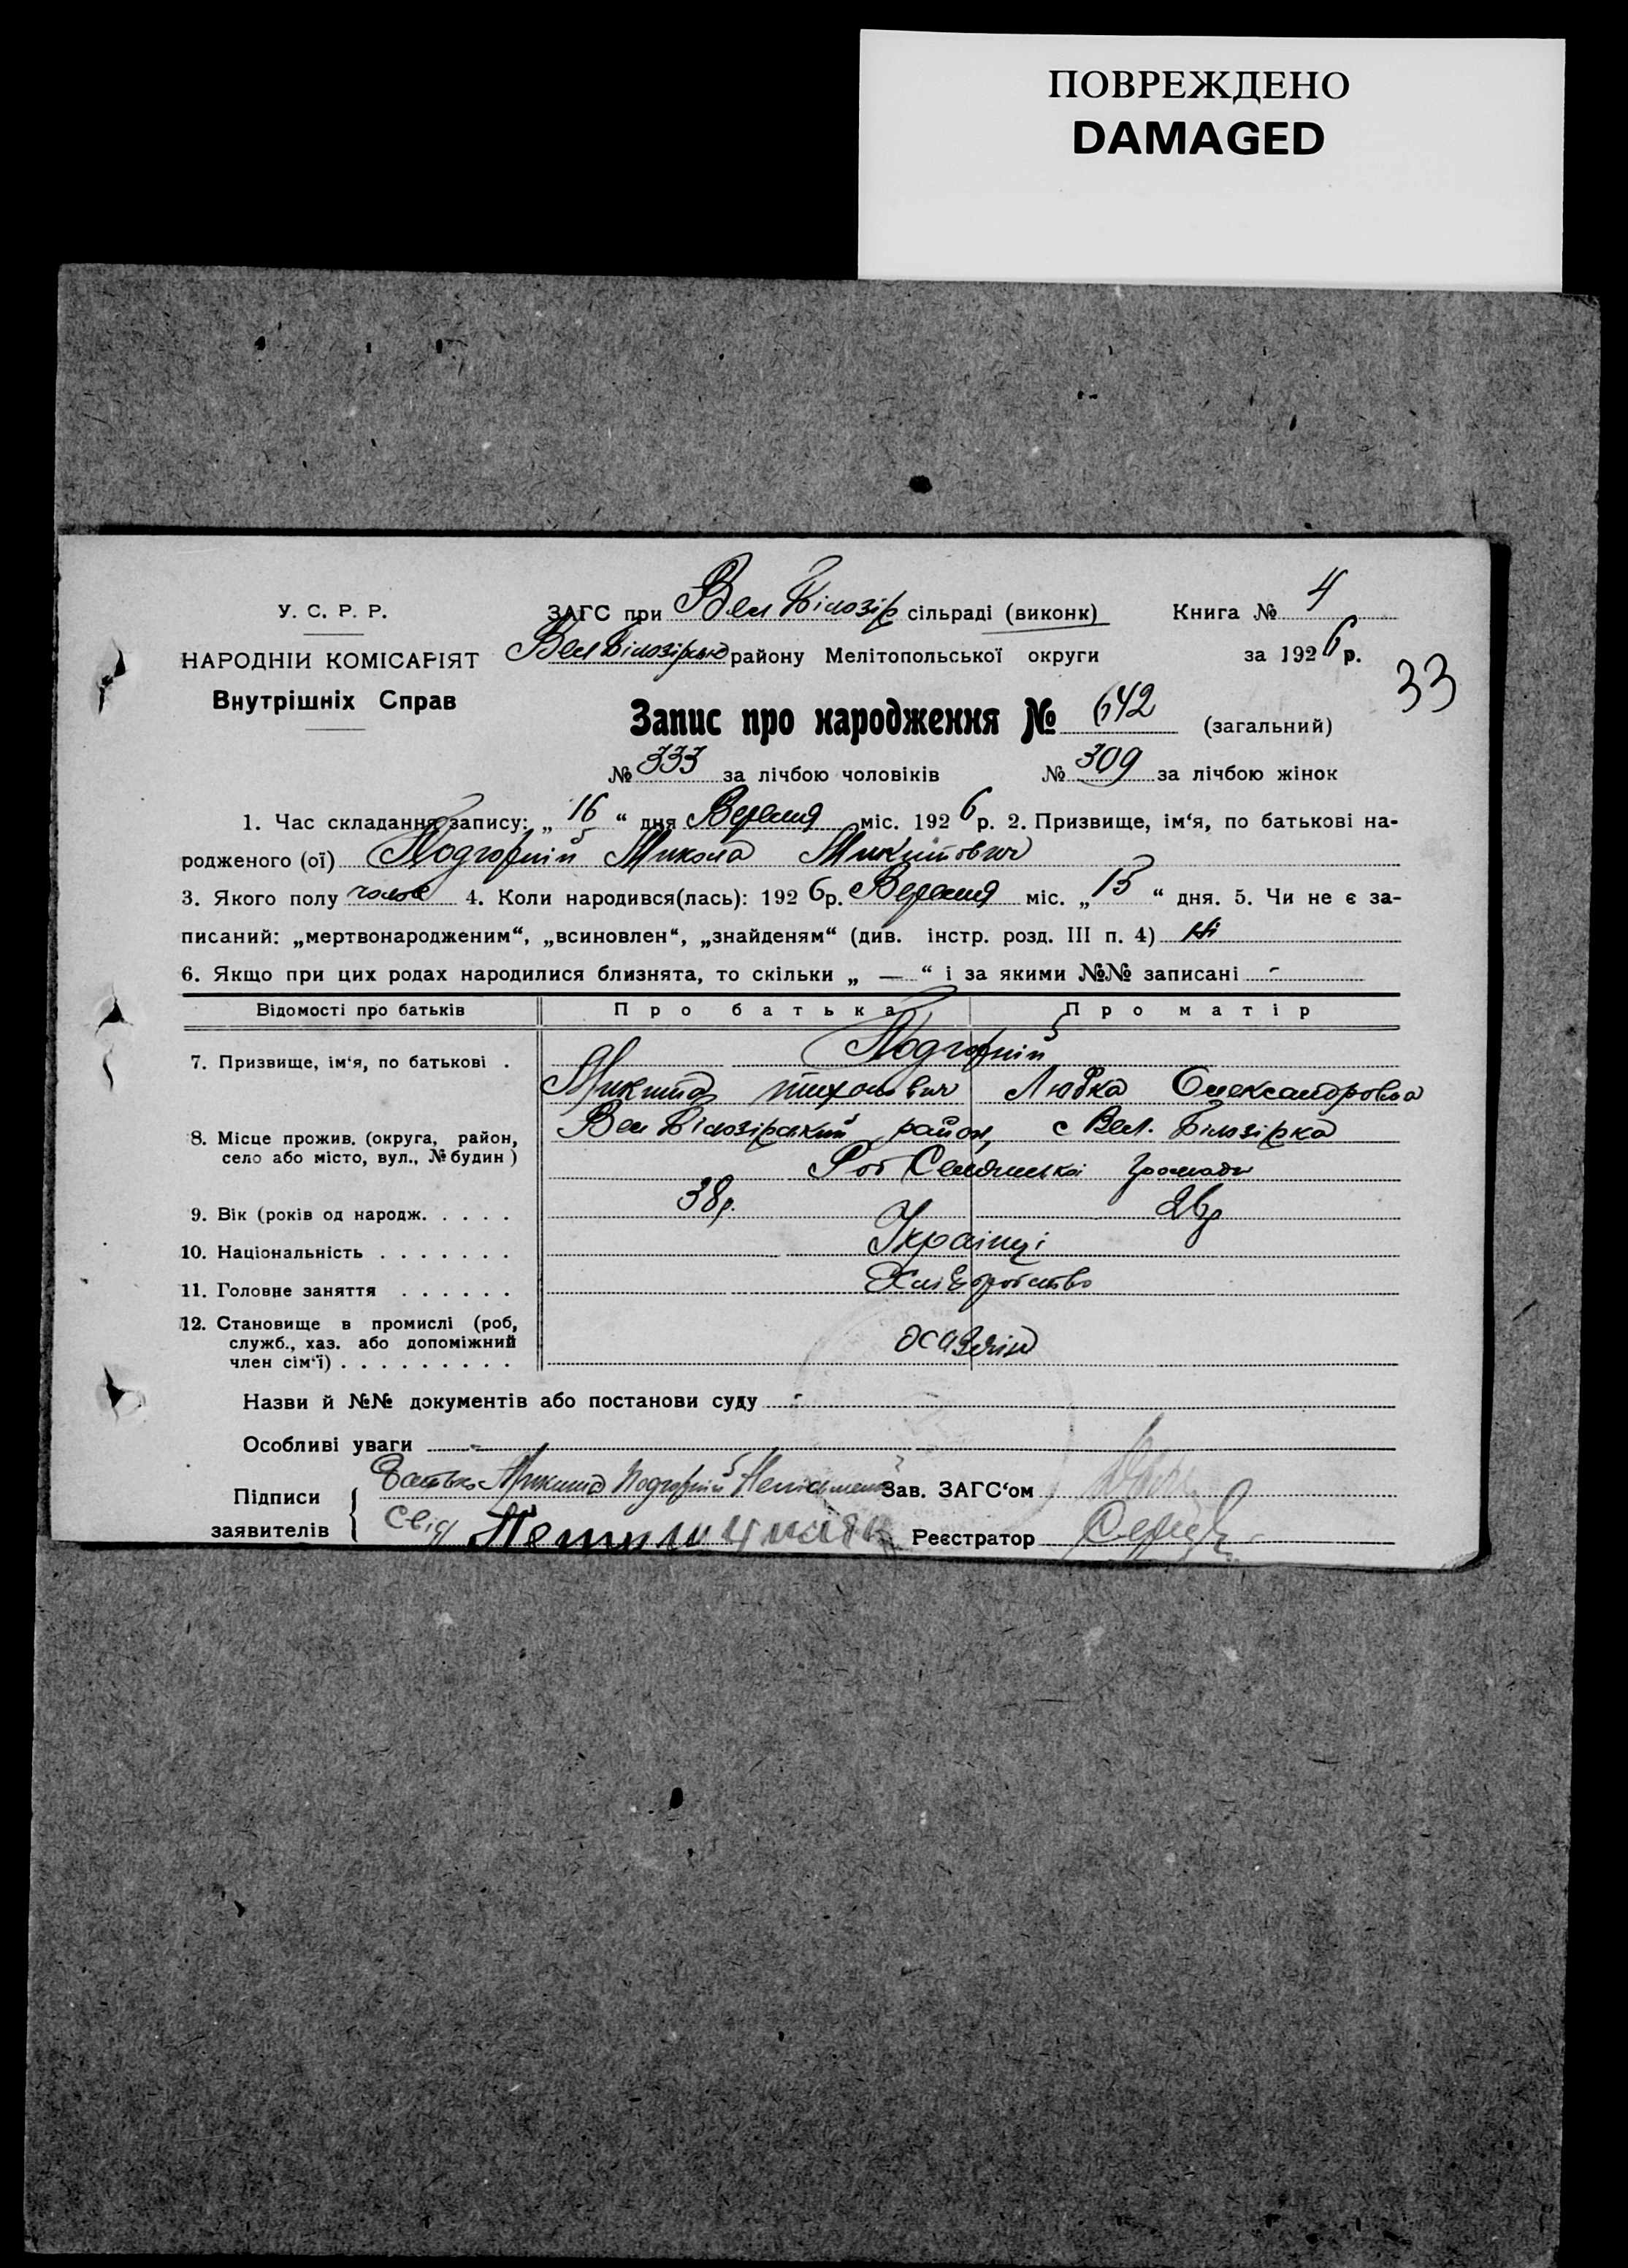 ПОВРЕЖДЕНО
DAMAGED
У. С. Р. Р.
НАРОДНІЙ КОМІСАРІЯТ
Внутрішніх Справ
ЗАГС при Вел Білозір сільраді (виконк)
Вел Білозірсько району Мелітопольської округи
Книга № 4
за 1926 р.
33
Запис про народження № 642 (загальний)
№ 333 за лічбою чоловіків № 309 за лічбою жінок
1. Час складання запису: „ 16 “ дня Вересня міс. 1926 р. 2. Призвище, ім‘я, по батькові на-
родженого (ої) Подгорній Микола Микитович
3. Якого полу чолов 4. Коли народився(лась): 1926 р. Вересня міс. „ 15 “ дня. 5. Чи не є за-
писаний: „мертвонародженим“, „всиновлен“, „знайденям“ (див. інстр. розд. III п. 4) Ні
6. Якщо при цих родах народилися близнята, то скільки „ — “ і за якими №№ записані -
Відомості про батьків Про батька Про матір
7. Призвище, ім‘я, по батькові . Подгорній
Микита тихонович Любка Олександровна
8. Місце прожив. (округа, район,
село або місто, вул., № будин)
Вел Білозірський район, с Вел. Білозірка
громади
9. Вік (років од народж. . . . . 38р. 26р
10. Національність . . . . . . . Українці
11. Головне заняття . . . . . . Хліборобство
12. Становище в промислі (роб,
служб., хаз. або допоміжний
член сім‘ї) . . . . . . . . .
Назви й №№ документів або постанови суду -
Особливі уваги -
Підписи
заявителів
Батько Микита Подгорній Неписьмений
Свід
Зав. ЗАГС‘ом
Реєстратор